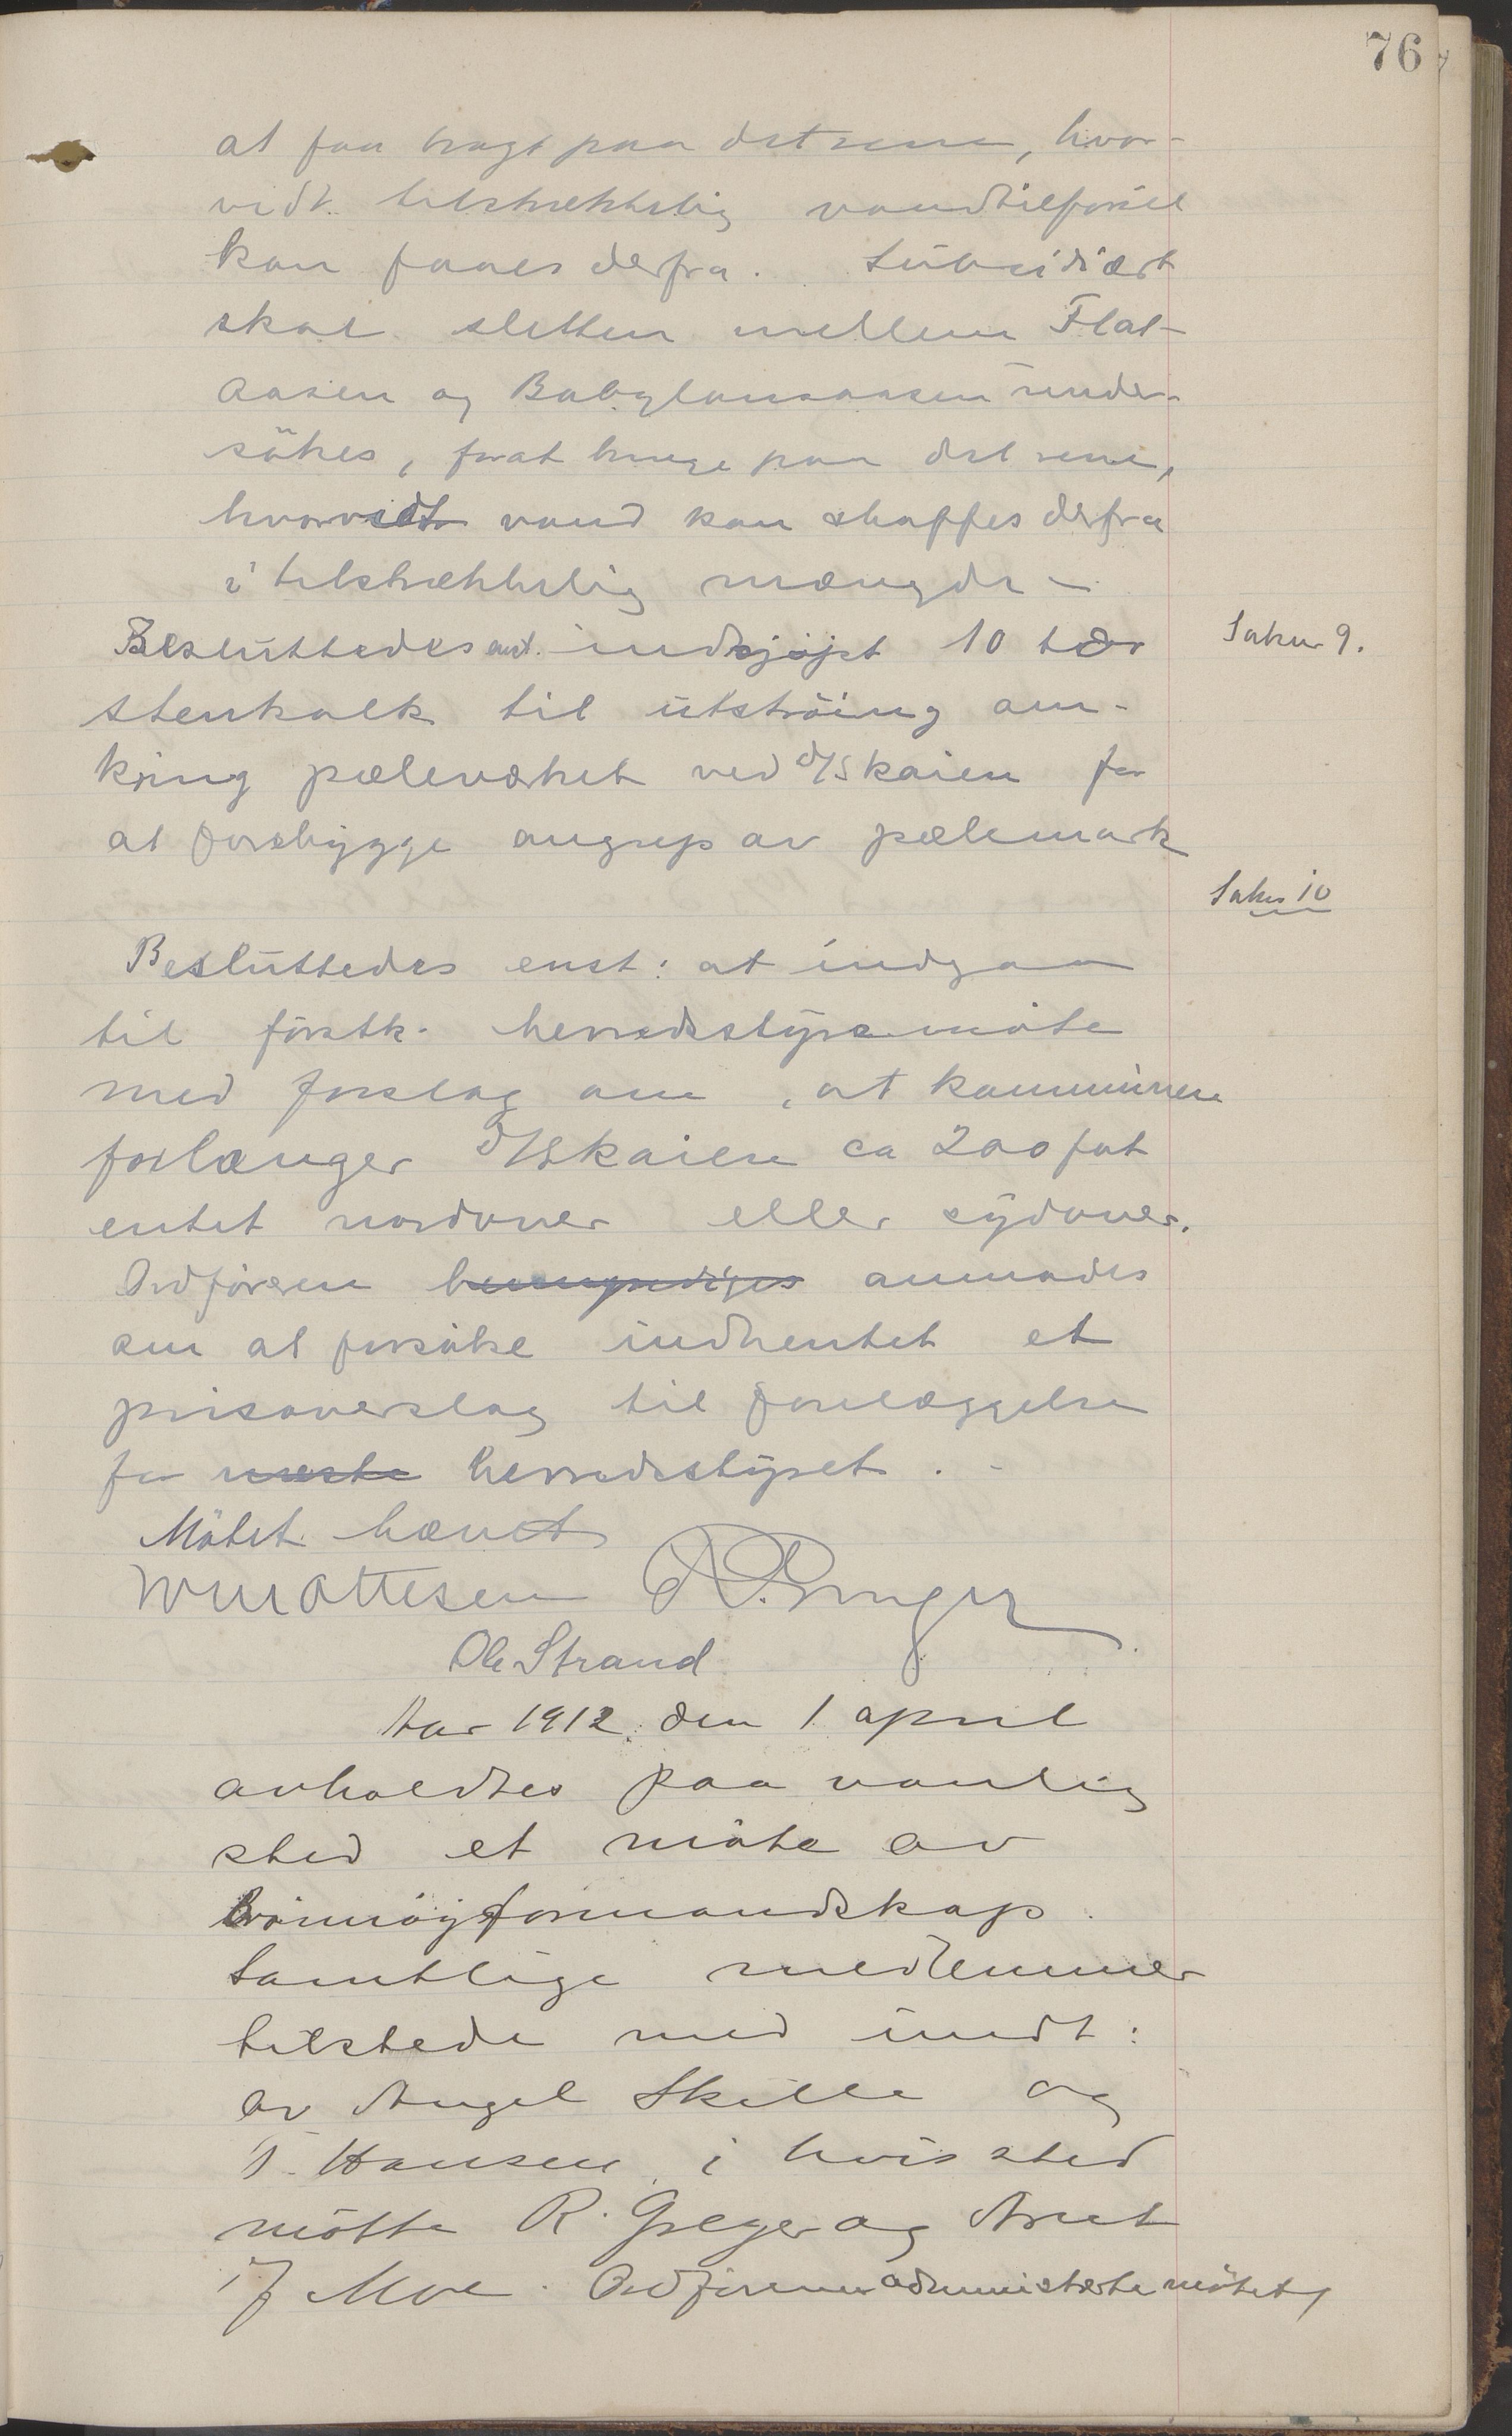 76
at faa bragt paa det rene, hvor-
vidt tilstrækkelig vandtilførsel
kan faaes derfra. Subsidiært
skal sletten mellem Flat-
aasen og Babylonaasen under-
søkes, for at bringe paa det rene,
hvorvidt vand kan skaffes derfra
i tilstrækkelig mængde –
Besluttedes enst. indkjøpt 10 tdr
Saknr 9.
stenkalk til utstrøing om-
kring pæleverket ved d/s kaien for
at forebygge angrep av pælemark
Saknr 10
Besluttedes enst: at indgaa
til førstk. herredsstyremøte
med forslag om, at kommunen
forlænger d/s kaien ca 200 fot
entet nordover eller sydover.
Ordføreren bemyndiges anmodes
om at forsøke indhentet et
prisoverslag til forelæggelse
for næste herredsstyret. -
Møtet hævet
Wm Ottesen
Ole Strand
Aar 1912. den 1 april
avholdtes paa vanlig
sted et møte av
Brønnøy formandskap.
Samtlige medlemmer
tilstede med undt:
av Angel Skille og
T. Hansen, i hvis sted
møtte R. Greger og Arnt
J Moe. Ordføreren administrerte møtet,